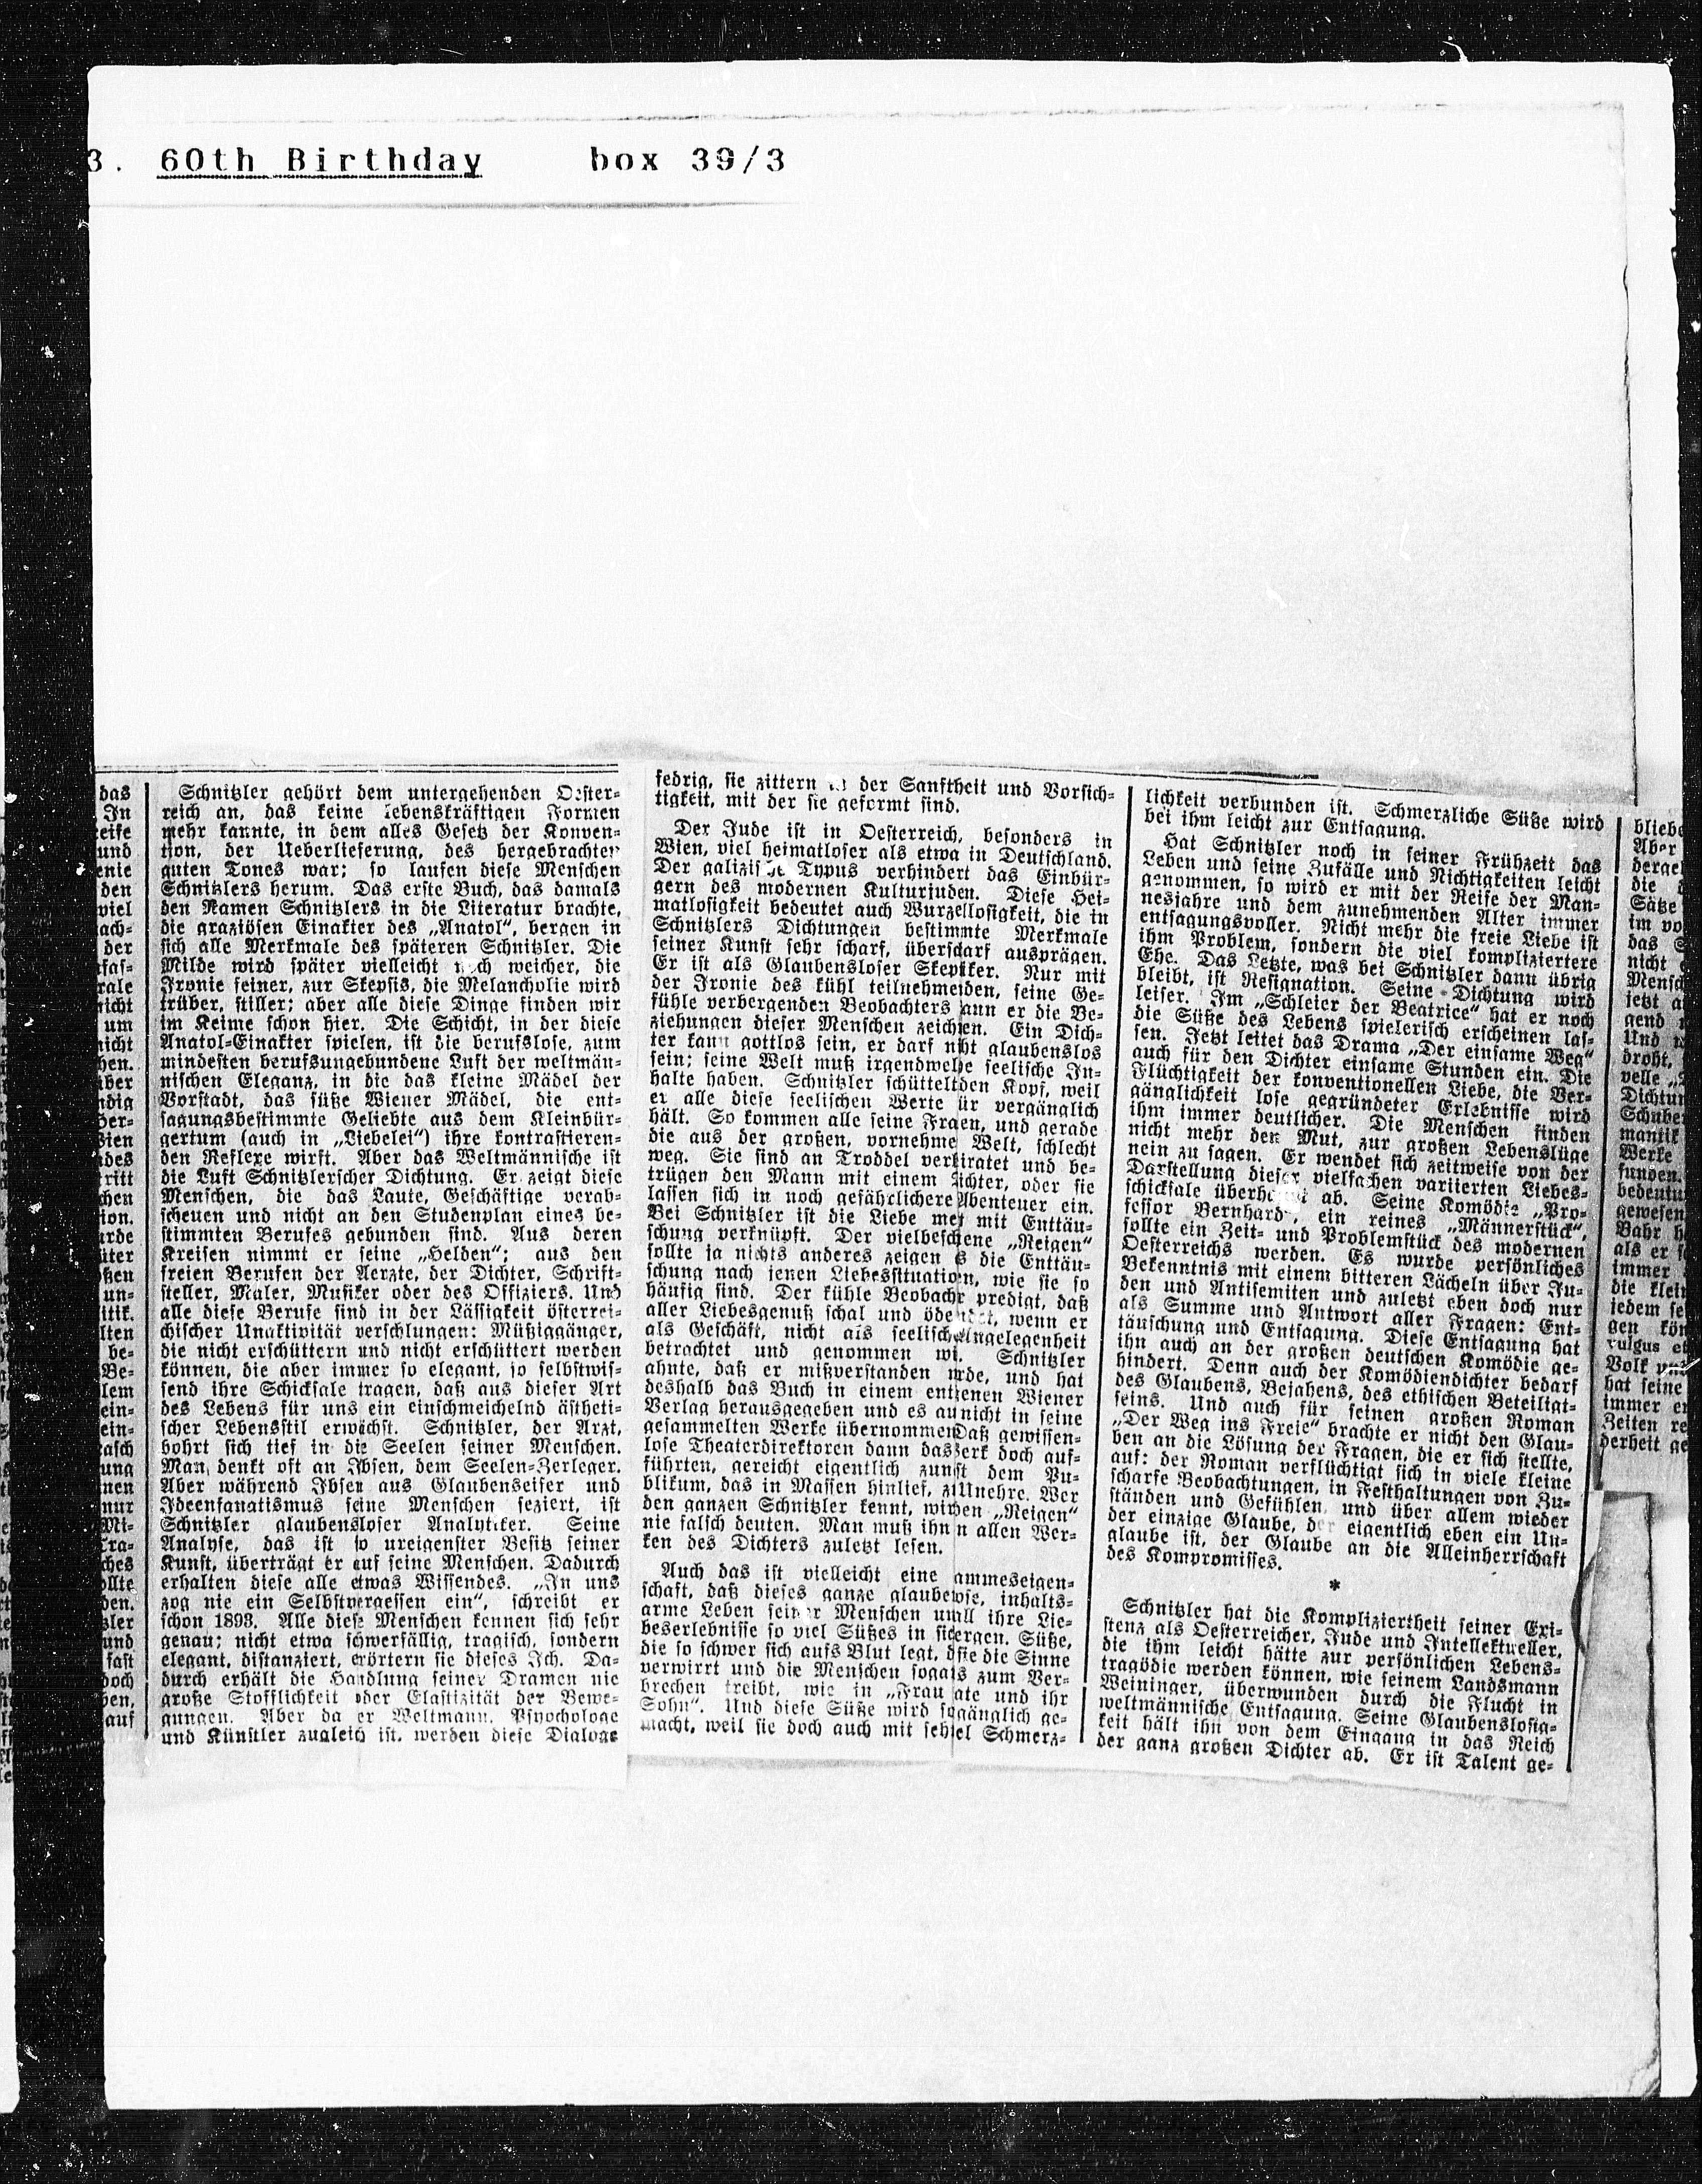 3. 60th Birthday box 39/3
das
In
reife
und
enie
den
viel
ach-
der
fas-
rale
nicht
um
nicht
hen.
über
ndig
her-
Wien
ndes
ritt
chen
ion.
urde
üter
oßen
un-
itik.
lten
be-
Be-
lem
ein-
ein-
rasch
ung
nen
nur
Mi-
Tra-
ches
ollte
den.
tzler
und
fast
doch
ben,
auf
Schnitzler gehört dem untergehenden Oester-
reich an, das keine lebenskräftigen Formen
mehr kannte, in dem alles Gesetz der Konven-
tion, der Ueberlieferung, des hergebrachten
guten Tones war; so laufen diese Menschen
Schnitzlers herum. Das erste Buch, das damals
den Namen Schnitzlers in die Literatur brachte,
die graziösen Einakter des „Anatol“, bergen in
sich alle Merkmale des späteren Schnitzler. Die
Milde wird später vielleicht noch weicher, die
Ironie feiner, zur Skepsis, die Melancholie wird
trüber, stiller; aber alle diese Dinge finden wir
im Keime schon hier. Die Schicht, in der diese
Anatol-Einakter spielen, ist die berufslose, zum
mindesten berufsungebundene Luft der weltmän-
nischen Eleganz, in die das kleine Mädel der
Vorstadt, das süße Wiener Mädel, die ent-
sagungsbestimmte Geliebte aus dem Kleinbür-
gertum (auch in „Liebelei“) ihre kontrastieren-
den Reflexe wirft. Aber das Weltmännische ist
die Luft Schnitzlerscher Dichtung. Er zeigt diese
Menschen, die das Laute, Geschäftige verab-
scheuen und nicht an den Studenplan eines be-
stimmten Berufes gebunden sind. Aus deren
Kreisen nimmt er seine „Helden“; aus den
freien Berufen der Aerzte, der Dichter, Schrift-
steller, Maler, Musiker oder des Offiziers. Und
alle diese Berufe sind in der Lässigkeit österrei-
chischer Unaktivität verschlungen: Müßiggänger,
die nicht erschüttern und nicht erschüttert werden
können, die aber immer so elegant, so selbstwis-
send ihre Schicksale tragen, daß aus dieser Art
des Lebens für uns ein einschmeichelnd ästheti-
scher Lebensstil erwächst. Schnitzler, der Arzt,
bohrt sich tief in die Seelen seiner Menschen.
Man denkt oft an Ibsen, dem Seelen-Zerleger.
Aber während Ibsen aus Glaubenseifer und
Ideenfanatismus seine Menschen seziert, ist
Schnitzler glaubensloser Analytiker. Seine
Analyse, das ist so ureigenster Besitz seiner
Kunst, überträgt er auf seine Menschen. Dadurch
erhalten diese alle etwas Wissendes. „In uns
zog nie ein Selbstvergessen ein“, schreibt er
schon 1893. Alle diese Menschen kennen sich sehr
genau; nicht etwa schwerfällig, tragisch, sondern
elegant, distanziert, erörtern sie dieses Ich. Da-
durch erhält die Handlung seiner Dramen nie
große Stofflichkeit oder Elastizität der Bewe-
gungen. Aber da er Weltmann, Psychologe
und Künstler zugleich ist, werden diese Dialoge
fedrig, sie zittern der Sanftheit und Vorsich-
tigkeit, mit der sie geformt sind.
Der Jude ist in Oesterreich, besonders in
Wien, viel heimatloser als etwa in Deutschland.
Der galizische Typus verhindert das Einbür-
gern des modernen Kulturjuden. Diese Hei-
matlosigkeit bedeutet auch Wurzellosigkeit, die in
Schnitzlers Dichtungen bestimmte Merkmale
seiner Kunst sehr scharf, überscharf ausprägen.
Er ist als Glaubensloser Skeptiker. Nur mit
der Ironie des kühl teilnehmenden, seine Ge-
fühle verbergenden Beobachters kann er die Be-
ziehungen dieser Menschen zeichnen. Ein Dich-
ter kann gottlos sein, er darf nicht glaubenslos
sein; seine Welt muß irgendwelche seelische In-
halte haben. Schnitzler schüttelt den Kopf, weil
er alle diese seelischen Werte für vergänglich
hält. So kommen alle seine Frauen, und gerade
die aus der großen, vornehmen Welt, schlecht
weg. Sie sind an Troddel verheiratet und be-
trügen den Mann mit einem Dichter, oder sie
lassen sich in noch gefährlichere Abenteuer ein.
Bei Schnitzler ist die Liebe meist mit Enttäu-
schung verknüpft. Der vielbeschriene „Reigen“
sollte ja nichts anderes zeigen als die Enttäu-
schung nach jenen Liebessituationen, wie sie so
häufig sind. Der kühle Beobachter predigt, daß
aller Liebesgenuß schal und öde endet, wenn er
als Geschäft, nicht als seelische Angelegenheit
betrachtet und genommen wird. Schnitzler
ahnte, daß er mißverstanden würde, und hat
deshalb das Buch in einem entlegenen Wiener
Verlag herausgegeben und es auch nicht in seine
gesammelten Werke übernommen. Daß gewissen-
lose Theaterdirektoren dann das Werk doch auf-
führten, gereicht eigentlich zunächst dem Pu-
blikum, das in Massen hinlief, zur Unehre. Wer
den ganzen Schnitzler kennt, wird den „Reigen“
nie falsch deuten. Man muß ihn in allen Wer-
ken des Dichters zuletzt lesen.
Auch das ist vielleicht eine Stammeseigen-
schaft, daß dieses ganze glaubenslose, inhalts-
arme Leben seiner Menschen und all ihre Lie-
beserlebnisse so viel Süßes in sich bergen. Süße,
die so schwer sich aufs Blut legt, daß sie die Sinne
verwirrt und die Menschen sogar bis zum Ver-
brechen treibt, wie in „Frau Beate und ihr
Sohn“. Und diese Süße wird so gänglich ge-
macht, weil sie doch auch mit so viel Schmerz-
lichkeit verbunden ist. Schmerzliche Süße wird
bei ihm leicht zur Entsagung.
Hat Schnitzler noch in seiner Frühzeit das
Leben und seine Zufälle und Nichtigkeiten leicht
genommen, so wird er mit der Reife der Man-
nesjahre und dem zunehmenden Alter immer
entsagungsvoller. Nicht mehr die freie Liebe ist
ihm Problem, sondern die viel kompliziertere
Ehe. Das Letzte, was bei Schnitzler dann übrig
bleibt, ist Resignation. Seine Dichtung wird
leiser. Im „Schleier der Beatrice“ hat er noch
die Süße des Lebens spielerisch erscheinen las-
sen. Jetzt leitet das Drama „Der einsame Weg“
auch für den Dichter einsame Stunden ein. Die
Flüchtigkeit der konventionellen Liebe, die Ver-
gänglichkeit lose gegründeter Erlebnisse wird
ihm immer deutlicher. Die Menschen finden
nicht mehr den Mut, zur großen Lebenslüge
nein zu sagen. Er wendet sich zeitweise von der
Darstellung dieser vielfachen variierten Liebes-
schicksale überhaupt ab. Seine Komödie „Pro-
fessor Bernhardi“, ein reines „Männerstück“,
sollte ein Zeit- und Problemstück des modernen
Oesterreichs werden. Es wurde persönliches
Bekenntnis mit einem bitteren Lächeln über Ju-
den und Antisemiten und zuletzt eben doch nur
als Summe und Antwort aller Fragen: Ent-
täuschung und Entsagung. Diese Entsagung hat
ihn auch an der großen deutschen Komödie ge-
hindert. Denn auch der Komödiendichter bedarf
des Glaubens, Bejahens, des ethischen Beteiligt-
seins. Und auch für seinen großen Roman
„Der Weg ins Freie“ brachte er nicht den Glau-
ben an die Lösung der Fragen, die er sich stellte,
auf: der Roman verflüchtigt sich in viele kleine
scharfe Beobachtungen, in Festhaltungen von Zu-
ständen und Gefühlen und über allem wieder
der einzige Glaube, der eigentlich eben ein Un-
glaube ist, der Glaube an die Alleinherrschaft
des Kompromisses.
*
Schnitzler hat die Kompliziertheit seiner Exi-
stenz als Oesterreicher, Jude und Intellektueller,
die ihm leicht hätte zur persönlichen Lebens-
tragödie werden können, wie seinem Landsmann
Weininger, überwunden durch die Flucht in
weltmännische Entsagung. Seine Glaubenslosig-
keit hält ihn von dem Eingang in das Reich
der ganz großen Dichter ab. Er ist Talent ge-
bliebe
Aber
derge
die
Sätze
im vo
das
nicht
Mensch
jetzt a
gend
Und
droht.
velle
Dichtun
Schuber
mantik
Werke
funden.
bedeutu
gewesen
Bahr h
als er s
immer
die klein
jedem se
gen kön
vulgus et
Volk und
hat seine
immer er
Zeiten re
derheit ge